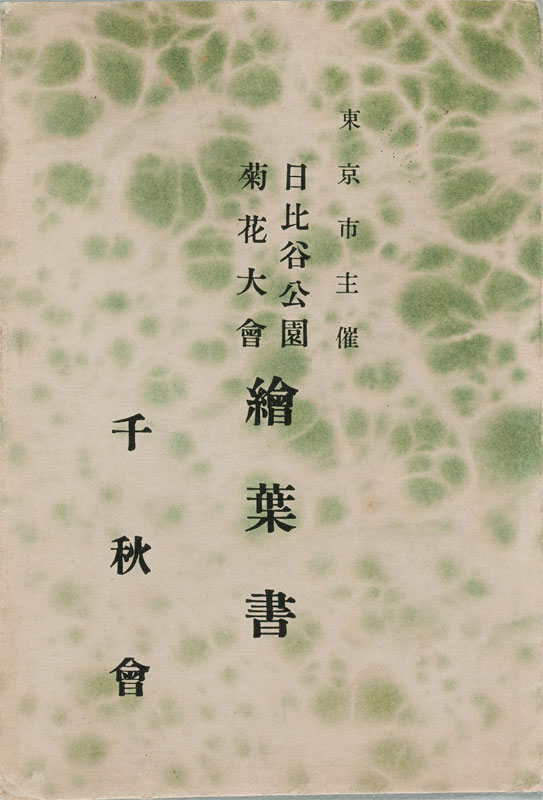 東京市主催
日比谷公園
菊花大會
繪葉書
千秋會